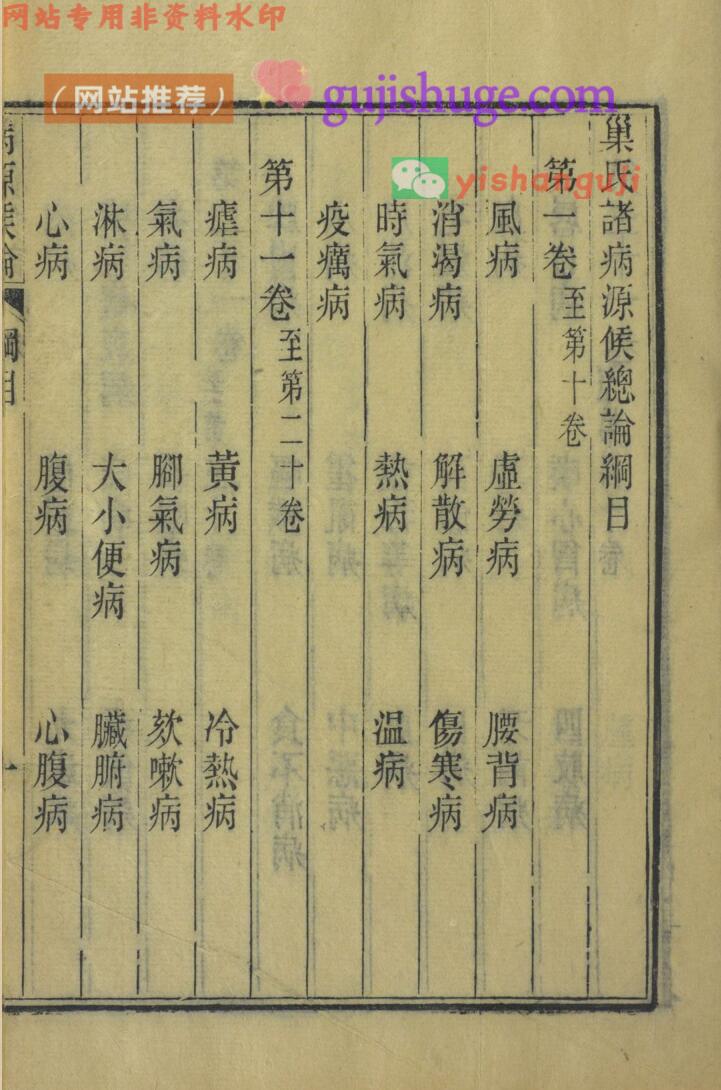 网站专用非资料水印
（网站推荐）
gujishuge.com
yishanguji
巢氏諸病源候總論綱目
第一卷至第十卷
風病 虛勞病 腰背病
消渴病 解散病 傷寒病
時氣病 熱病 温病
疫癘病
第十一卷至第二十卷
瘧病 黃病 冷熱病
氣病 腳氣病 欬嗽病
淋病 大小便病 臟腑病
心病 腹病 心腹病
病源候論 綱目 一